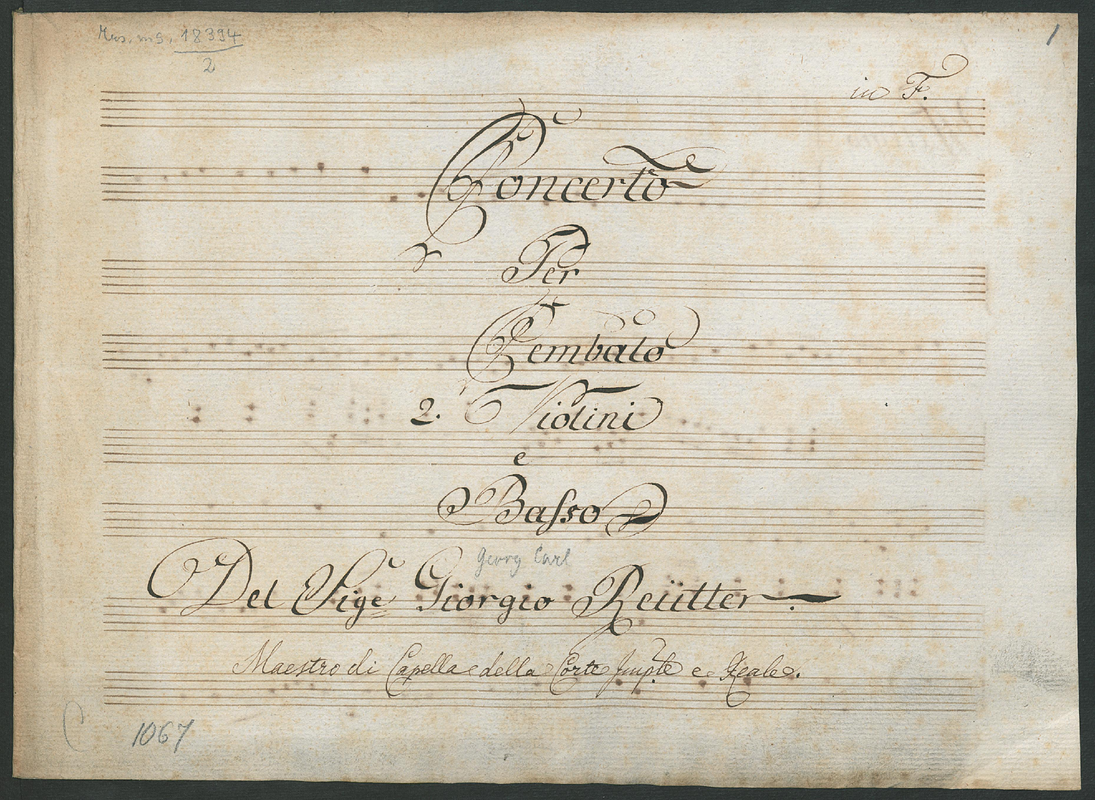 Mus. ms. 18394
2
1
in F.
Concerto
Per
Cembalo
2. Violini
e
Baſso
Georg Carl
Del Sigre Giorgio Reütter.
Maestro di Capella della Corte Imple e Reale.
1067